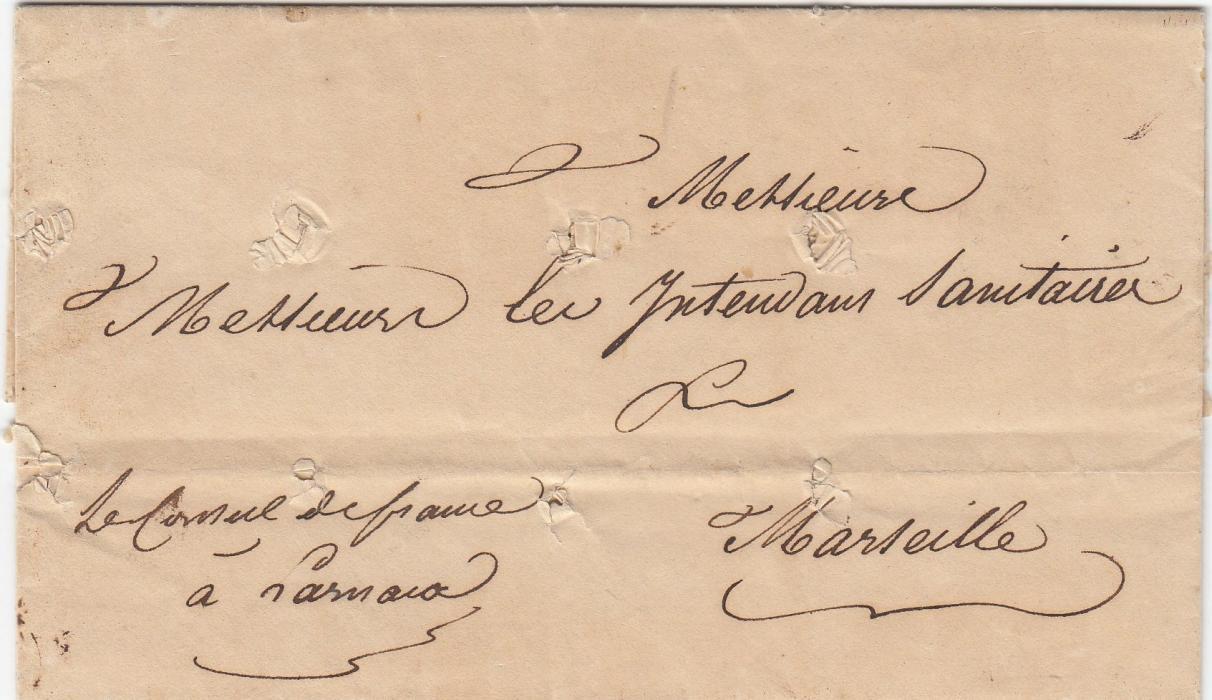 Messieurs
Messieurs les Intendans Sanitaires
Le Consul de france
Marseille
à Larnaca